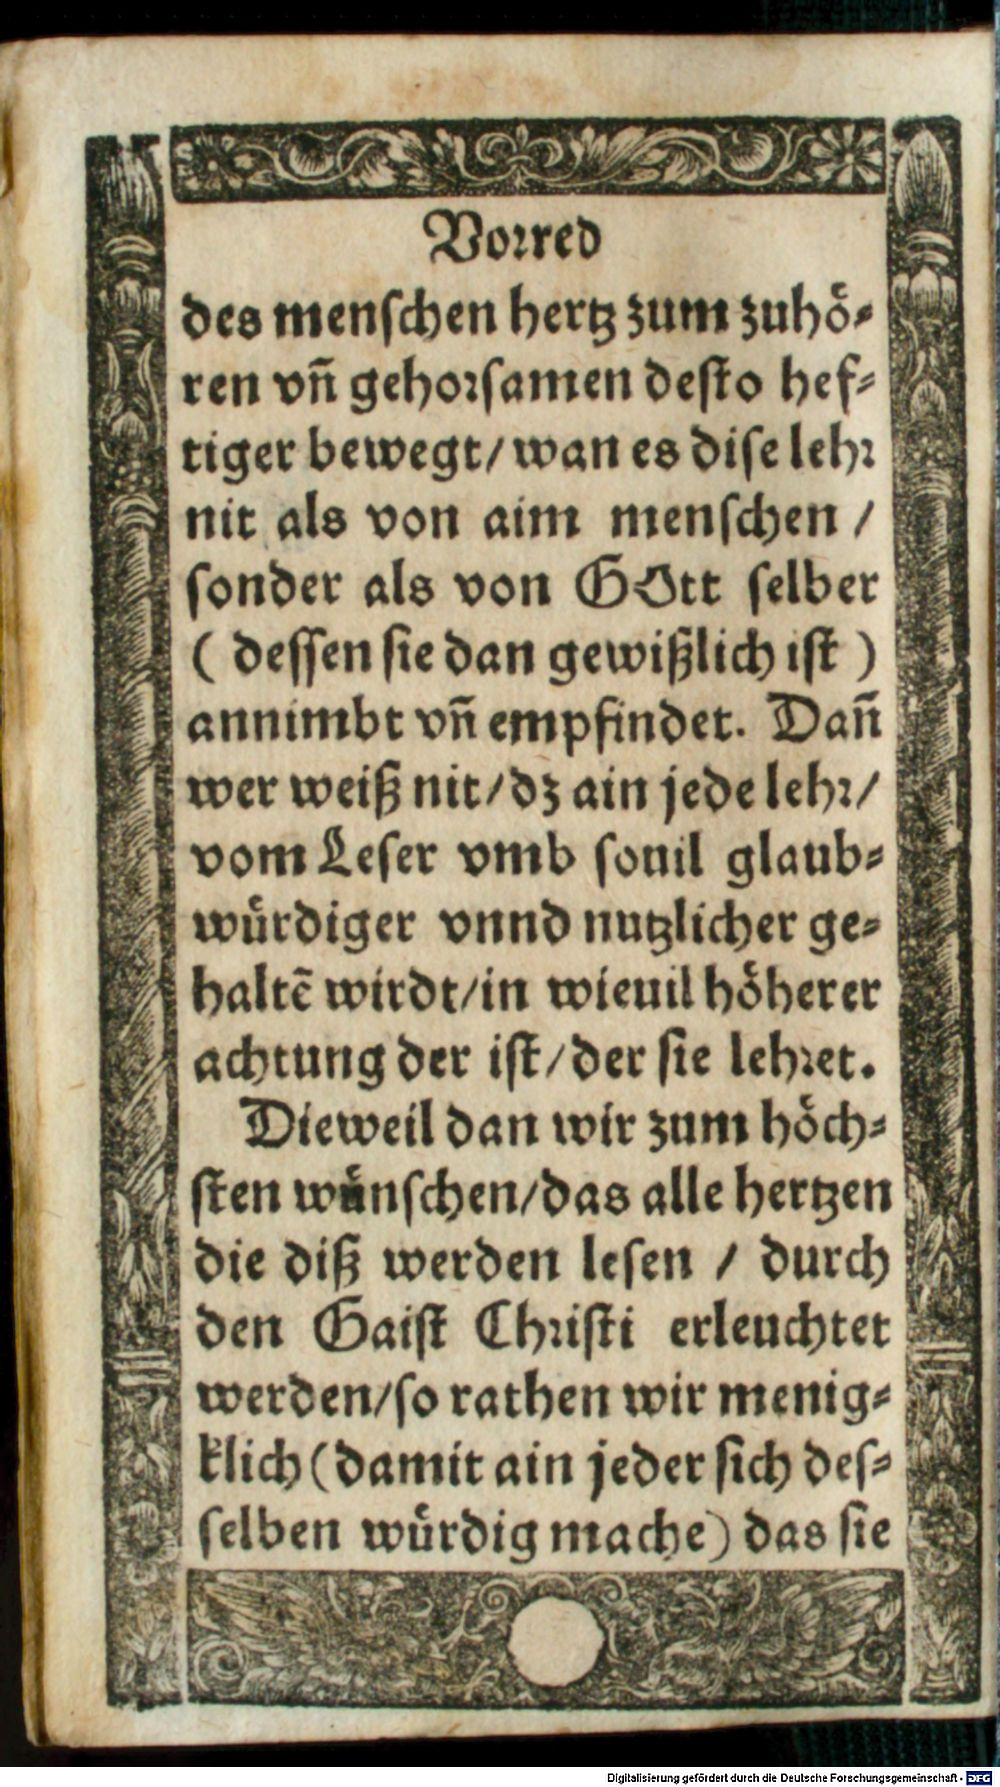 Vorred
des menschen hertz zum zuhö-
ren vñ gehorsamen desto hef-
tiger bewegt/ wan es dise lehr
nit als von aim menschen /
sonder als von GOtt selber
( dessen sie dan gewißlich ist )
annimbt vñ empfindet. Dañ
wer weiß nit/ dz ain jede lehr/
vom Leser vmb souil glaub-
würdiger vnnd nutzlicher ge-
haltẽ wirdt/ in wieuil höherer
achtung der ist/ der sie lehret.
Dieweil dan wir zum höch-
sten wünschen/ das alle hertzen
die diß werden lesen / durch
den Gaist Christi erleuchtet
werden/ so rathen wir menig-
klich (damit ain jeder sich des-
selben würdig mache) das sie
Digitalisierung gefördert durch die Deutsche Forschungsgemeinschaft - DFG